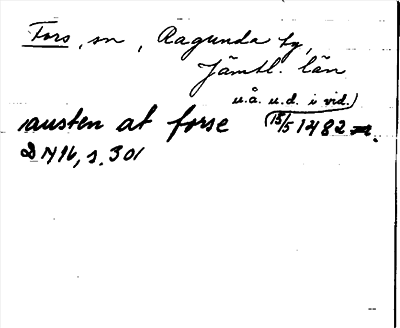 Fors, sn, Ragunda tg,
Jämtl. län
u.å. u.d. i vid.
austen at forse 15/5 1482
DN 16, s. 301